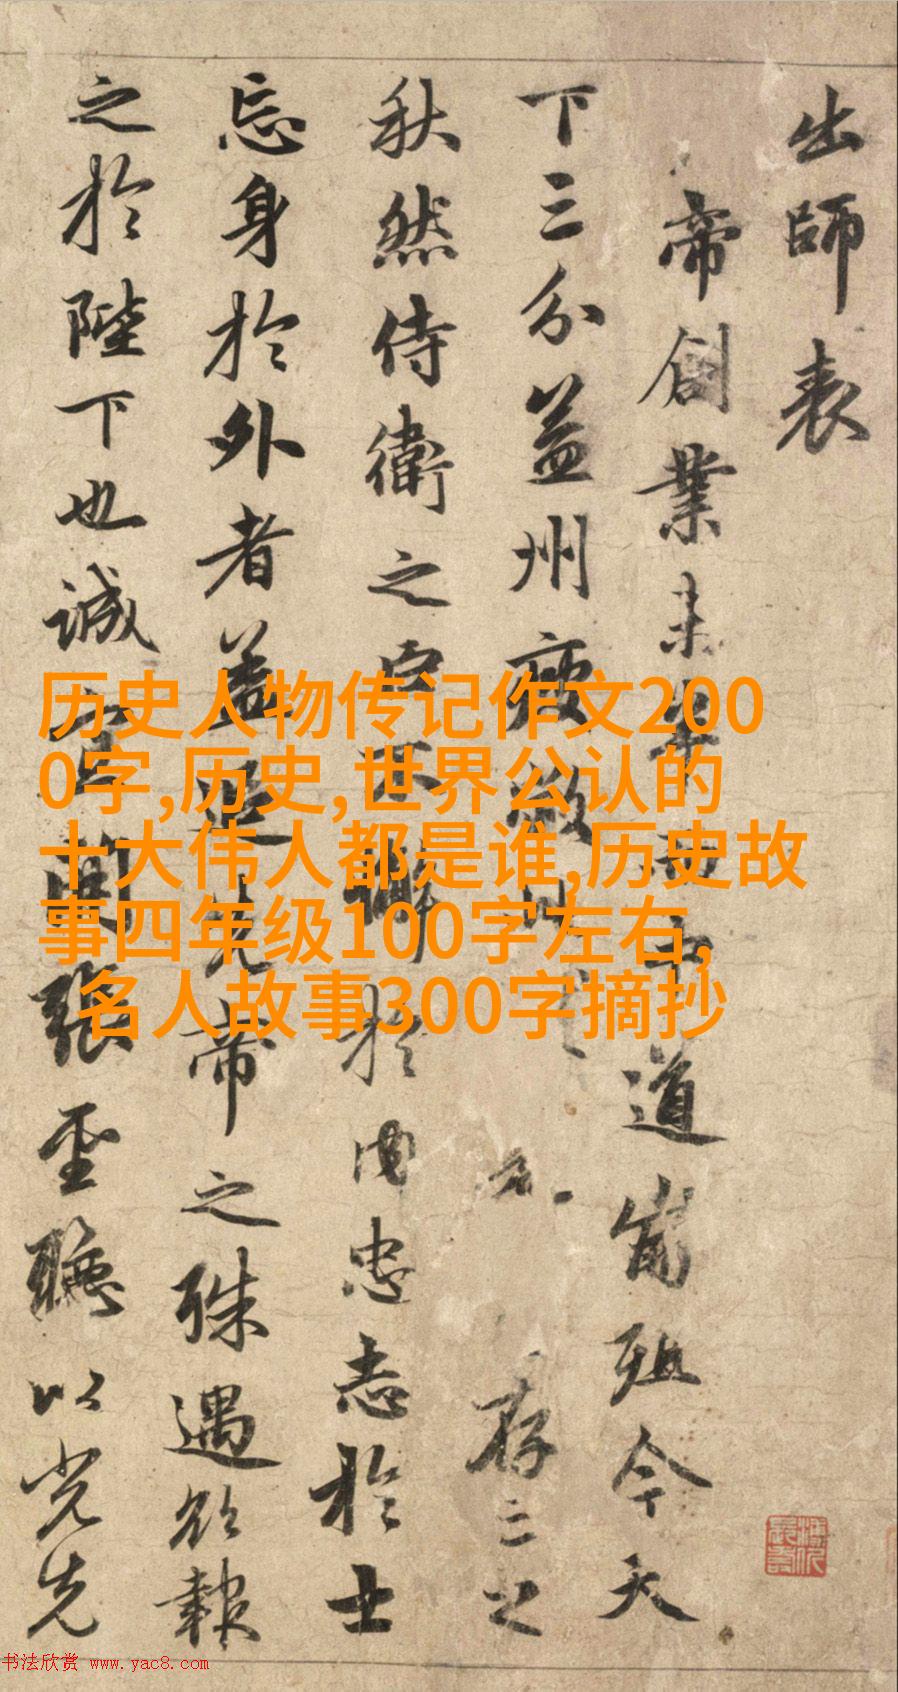 出師表
帝創業未半而中道崩殂今天
下三分益州疲敝此存亡之
秋然侍衛之臣不懈於内忠志於士
忘身於外者蓋追先帝之殊遇欲報
之於陛下也誠宜開張聖聽以光先
历史人物传记作文200
0字,历史,世界公认的
十大伟人都是谁,历史故
事四年级100字左右,
名人故事300字摘抄
书法欣赏 www.yac8.com